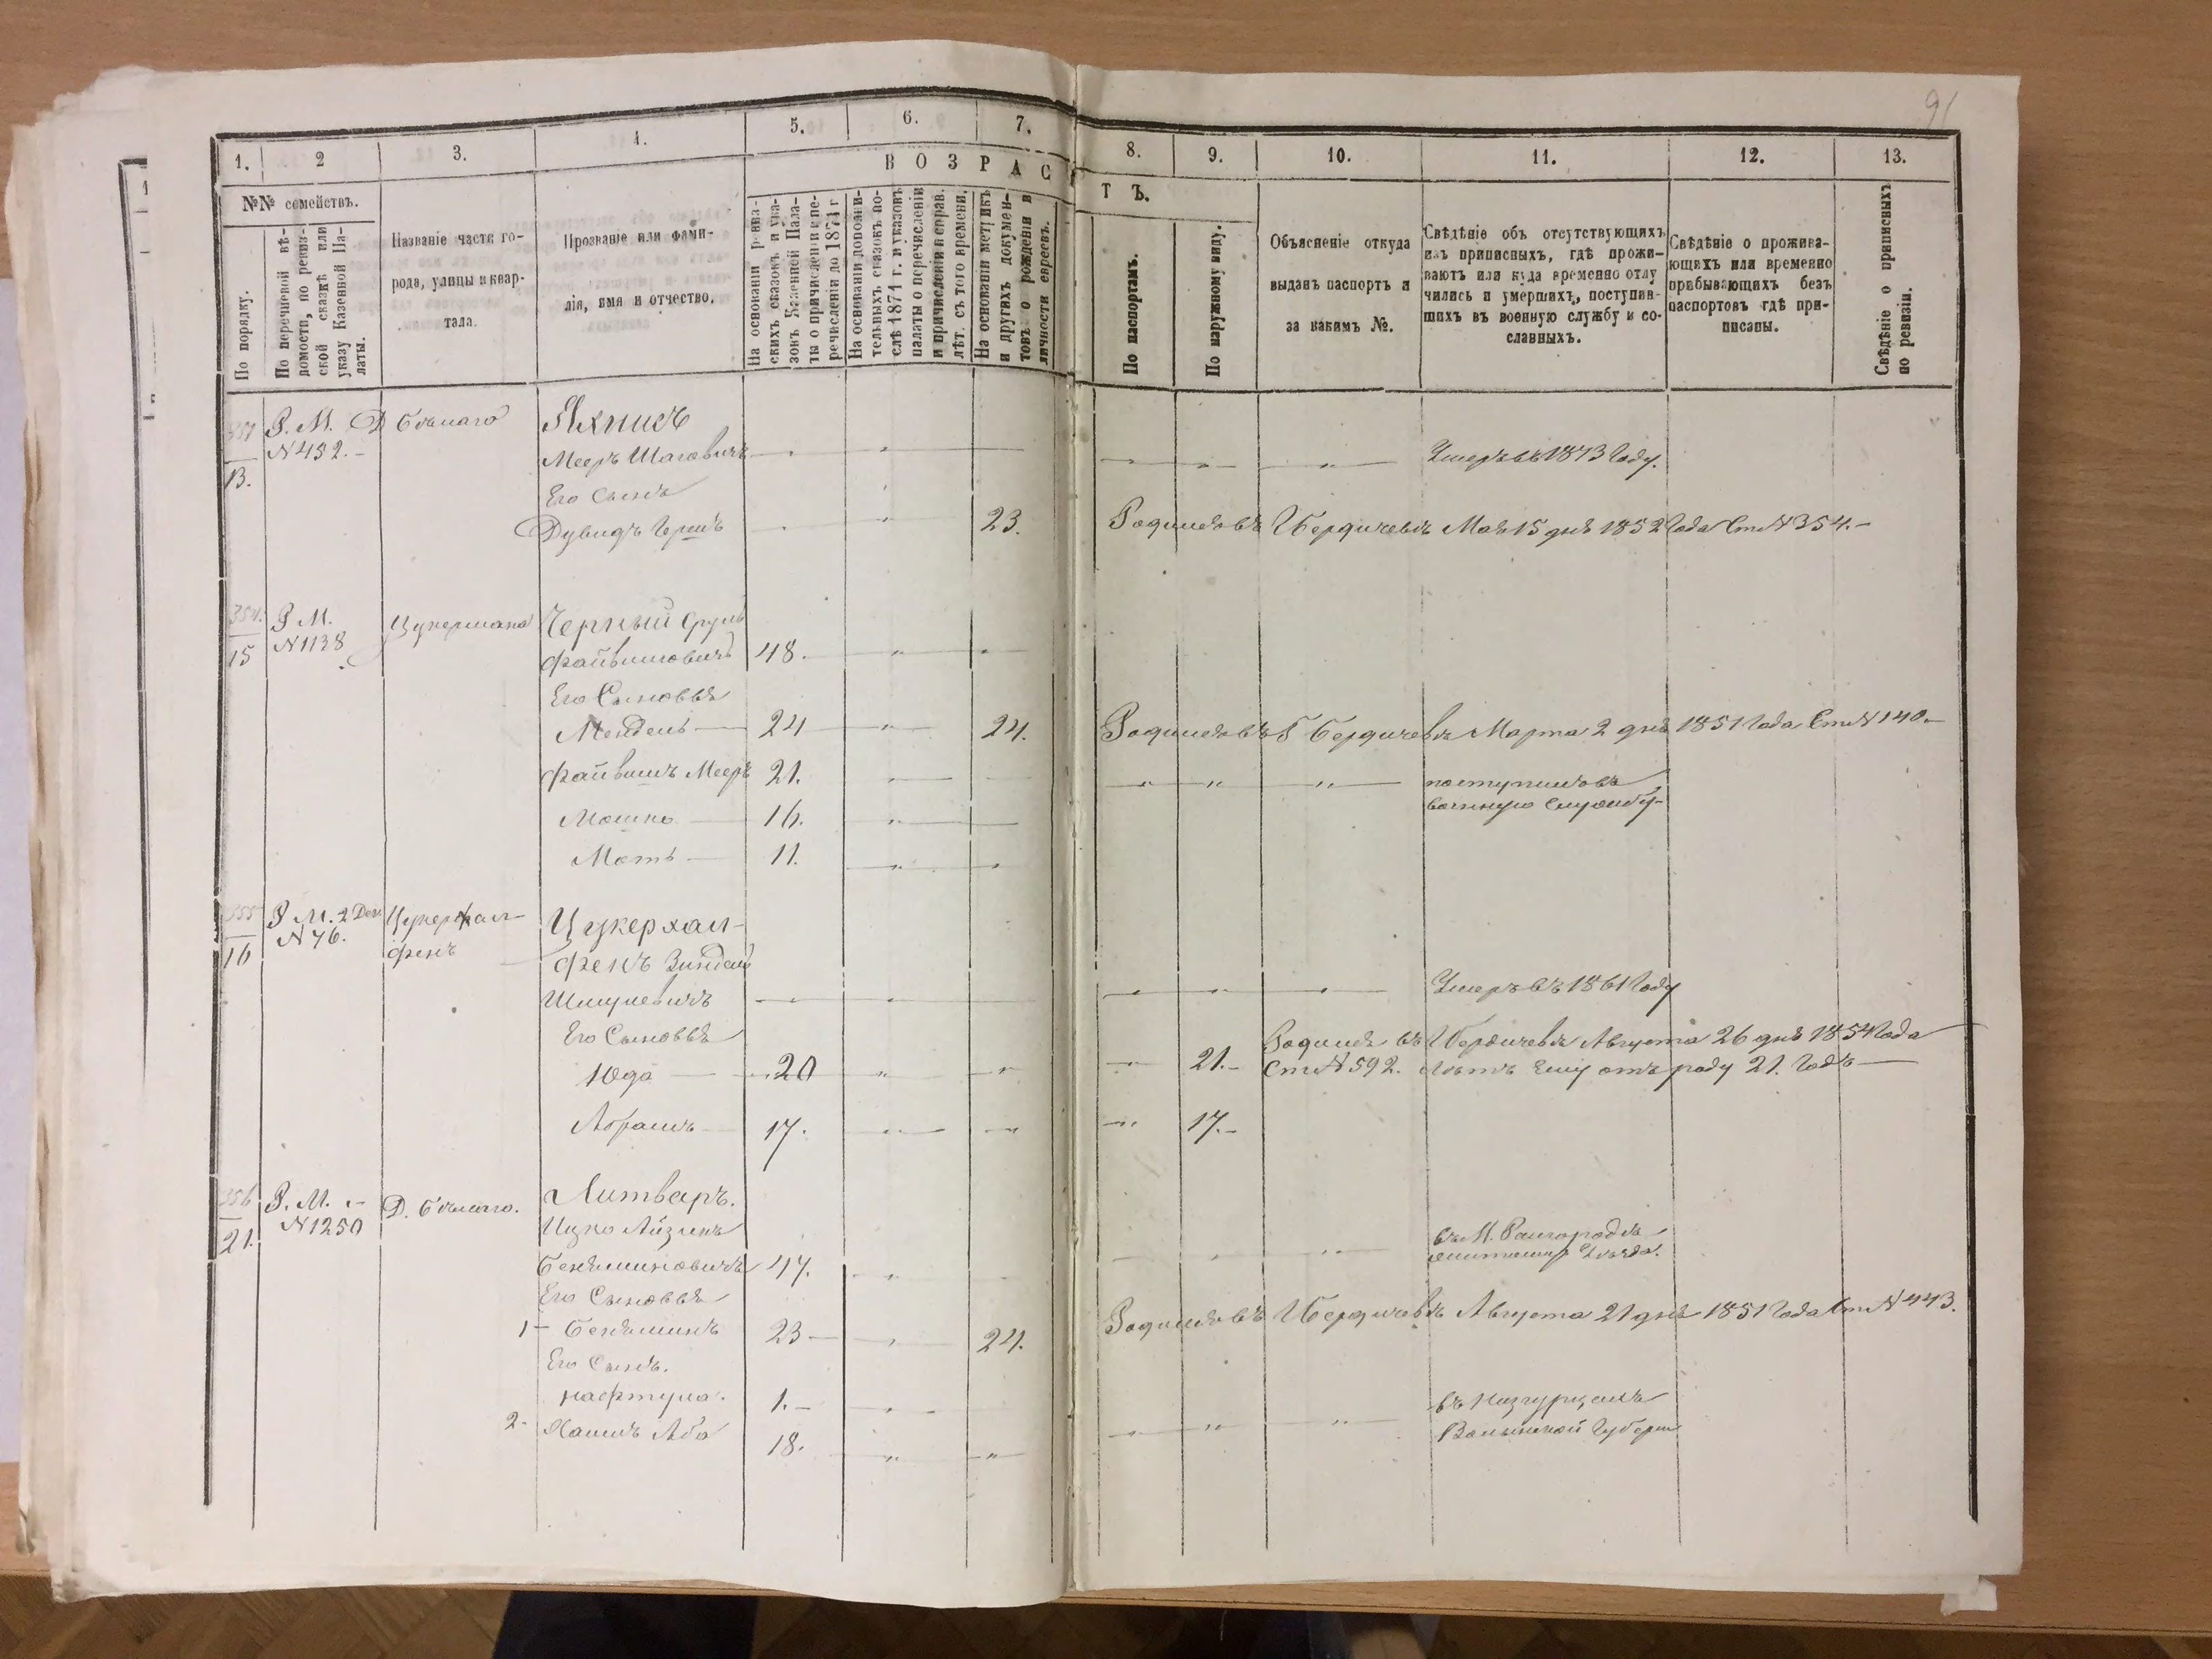 91
1.
2
3.
4.
5.
6.
7.
8.
9.
10.
11.
12.
13.
ВОЗРАС
ТЪ.
№№ семействъ.
По порядку.
По перечневой вѣ-
домости, по ревиз-
ской сказкѣ или
указу Казенной Па-
латы.
Названіе части го-
рода, улицы и квар-
тала.
Прозваніе или фами-
лія, имя и отчество.
На основаніи ревиз-
скихъ сказокъ и ука-
зокъ Казенной Пала-
ты о причисленіи и пе-
речисленіи до 1871 г
На основаніи дополни-
тельныхъ сказокъ по-
слѣ 1871 г. и указовъ
палаты о перечисленіи
и причисленіи и справ.
лѣт. съ того времени.
На основаніи метрикъ
и другихъ докумен-
товъ о рожденіи и
личности евреевъ.
По паспортамъ.
По наружному виду.
Объясненіе откуда
выданъ паспортъ и
за какимъ №.
Свѣдѣніе объ отсутствующихъ
изъ приписныхъ, гдѣ прожи-
ваютъ или куда временно отлу
чились и умершихъ, поступив-
шихъ въ военную службу и со-
сланныхъ.
Свѣдѣніе о прожива-
ющихъ или временно
прабывающихъ безъ
паспортовъ гдѣ при-
писаны.
Свѣдѣніе о приписныхъ
по ревизіи.
Р. М. Д Бѣлаго Яхнисъ
N 452.- Мееръ Умеръ въ 1873 Году.
13. Его Сынъ
Дувидъ Гершъ 23. Родился въ Г Бердичевѣ Мая 15 дня 1852 Года Ст N 354.-
354. Р М. Цукермана Черный Сруль
15 N 1138 Файвишовичъ 48.
Его Сыновья
Мендель 24 24. Родился въ Г Бердичевѣ Марта 2 дня 1851 Года Ст N 140.-
Файвишъ Мееръ 21. поступилъ въ
военную Службу-
Мошко 16.
Моть 11.
355 Р М. 2 Цукерхал- Цукерхал-
16 N 76. фенъ фенъ Зиндель
Шмулевичъ Умеръ въ 1861 Году
Его Сыновья Родился въ Г Бердичевѣ Августа 26 дня 1854 Года
Юда 20 21.- Ст N 592. лѣтъ Ему отъ роду 21. Годъ
Абрамъ 17. 17.-
356 Р. М. - Д. Бѣлаго. Литваръ.
21. N 1250 Ицко Айзикъ въ М.
Бенѣминовичъ 47. Уѣзда.
Его Сыновья
1- Бенѣминъ 23- 24. Родился въ Г Бердичевѣ Августа 21 дня 1851 Года Ст N 443.
Его Сынъ.
нафтула. 1.-
2- Хаимъ Аба 18. Волынской Губерн